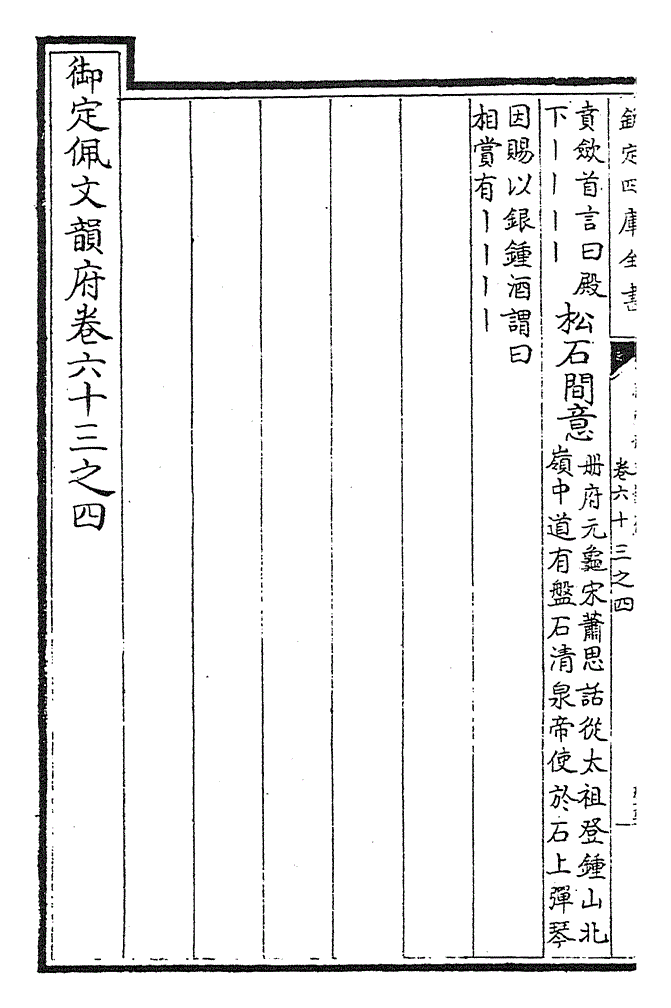 欽定四庫全書
卷六十三之四
賁斂首言曰殿
下丨丨丨丨
松石間意
册府元龜宋蕭思話從太祖登鍾山北
嶺中道有盤石清泉帝使於石上彈琴
因賜以銀鍾酒謂曰
相賞有丨丨丨丨
御定佩文韻府卷六十三之四